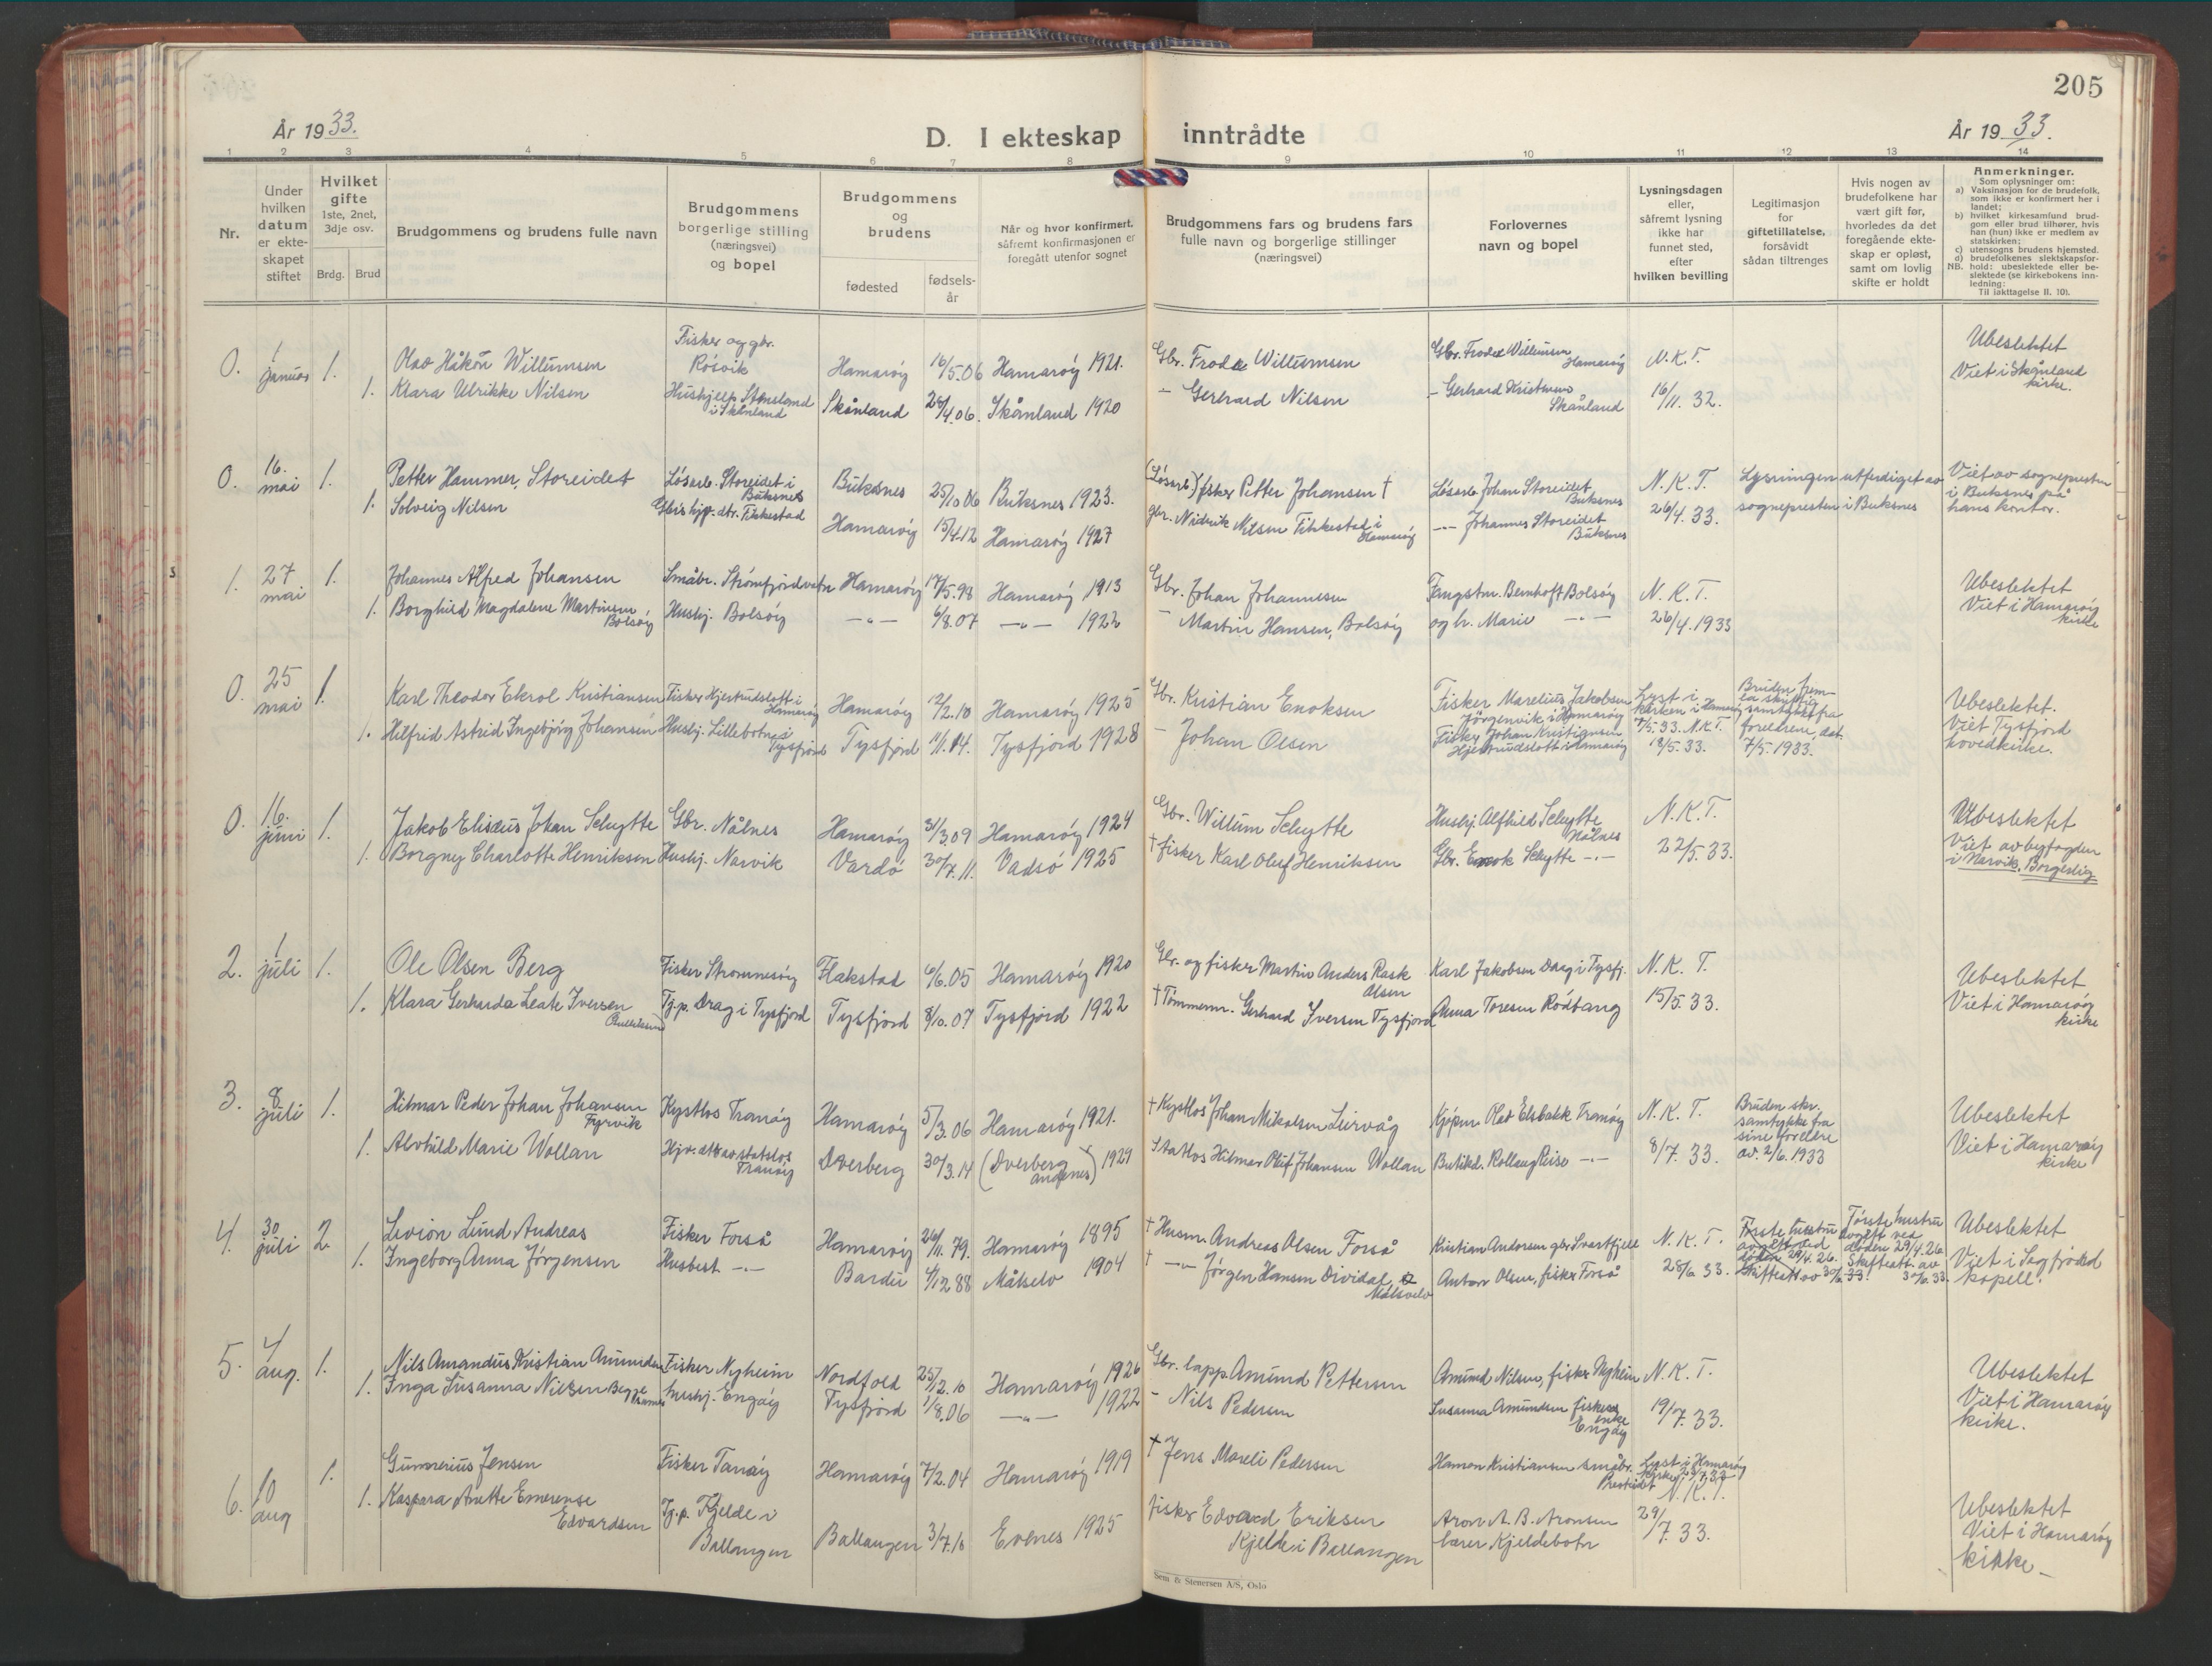 205
År 1933.
D. I ekteskap inntrådte
År 1933.
1 2 3 4 5 6 7 8 9 10 11 12 13 14
Nr.
Under hvilken datum er ekteskapet stiftet
Hvilket gifte 1ste, 2net, 3dje osv.
Brdg. Brud
Brudgommens og brudens fulle navn
Brudgommens borgerlige stilling (næringsvei) og bopel
Brudgommens og brudens
fødested
fødselsår
Når og hvor konfirmert, såfremt konfirmasjonen er foregått utenfor sognet
Brudgommens fars og brudens fars fulle navn og borgerlige stillinger (næringsvei)
Forlovernes navn og bopel
Lysningsdagen eller, såfremt lysning ikke har funnet sted, efter hvilken bevilling
Legitimasjon for giftetillatelse, forsåvidt sådan tiltrenges
Hvis nogen av brudefolkene har vært gift før, hvorledes da det foregående ekteskap er opløst, samt om lovlig skifte er holdt
Anmerkninger.
Som oplysninger om:
a) Vaksinasjon for de brudefolk, som ikke er konfirmert her i landet;
b) hvilket kirkesamfund brudgom eller brud tilhører, hvis han (hun) ikke er medlem av statskirken;
c) utensogns brudens hjemsted.
d) brudefolkenes slektskapsforhold: ubeslektede eller beslektede (se kirkebokens innledning:
NB.
Til iakttagelse II. 10).
0. 1 januar 1. Olav Håkon Willumsen Fisker og gbr. Rösvik Hamaröy 16/5.06 Hamaröy 1921. Gbr. Frode Willumsen Gbr. Frode Willumsen Hamaröy N.K.T. Ubeslektet
1. Klara Ulrikke Nilsen Hushjelp Stensland i Skånland Skånland 26/4.06. Skånland 1920 - Gerhard Nilsen - Gerhard Skånland 16/11.32. Viet i Skånland kirke.
0. 16. mai 1. Petter Hammer, Storeidet Lösarb. Storeidet i Buksnes Buksnes 25/10 06 Buksnes 1923. (Lösarb) fisker Petter Johansen † Lösarb. Johan Storeidet Buksnes N.K.T. Lysningen utferdiget av Viet av sognepresten
1. Solveig Nilsen Gbrs hjp. dtr. Tikkestad Hamaröy 15/4.12 Hamaröy 1927 gbr. Nidrik Nilsen Tikkestad i Hamaröy -"- Johannes Storeidet Buksnes 26/4.33. sognepresten i Buksnes i Buksnes på hans kontor.
1. 27 mai 1. Johannes Alfred Johansen Småbr. Strömfjordvatn Hamaröy 17/5.98 Hamaröy 1913 Gbr. Johan Johannesen Fangstm. Bernhoft Bolsöy N.K.T. Ubeslektet
1. Borghild Magdalene Martinsen Bolsöy Hushj. Bolsöy -"- 6/8.07 -"- 1922 - Martin Hansen, Bolsöy og h. Marie -"- 26/4.1933 Viet i Hamaröy kirke
0. 25 mai 1. Karl Theodor Ekrol Kristiansen Fisker Hjertrudslott i Hamaröy Hamaröy 12/2.10 Hamaröy 1925 Gbr. Kristian Enoksen Fisker Marelius Jakobsen Jörgenvik i Hamaröy Lyst i kirken i Hamaröy 7/5.33. N.K.T. Bruden frem- skriftlig samtykke fra Ubeslektet.
1. Hilfrid Astrid Ingebjörg Johansen Hushj. Lillebotn i Tysfjord Tysfjord 11/1.14. Tysfjord 1928 - Johan Olsen Fisker Johan Kristiansen Hjertrudslott i Hamaröy 18/5.33. foreldrene, dat. 7/5.1933. Viet Tysfjord hovedkirke.
0. 16. juni 1. Jakob Elisæus Johan Schytte Gbr. Nålnes Hamaröy 31/3.09 Hamaröy 1924 Gbr. Willum Schytte Hushj. Alfhild Schytte Nålnes N.K.T. Ubeslektet
1. Borgny Charlotte Henriksen Hushj. Narvik Vardö 30/7.11. Vadsö 1925 † fisker Karl Oluf Henriksen Gbr. Enok Schytte -"- 22/5.33. Viet av byfogden i Narvik. Borgerlig
2. 1 juli 1. Ole Olsen Berg Fisker Strömnesöy Flakstad 6/6.05 Hamaröy 1920 Gbr. og fisker Martin Anders Rask Olsen Karl Jakobsen Drag i Tysfj. N.K.T. Ubeslektet
1. Klara Gerharda Leate Iversen Tj.p. Drag i Tysfjord Tysfjord 8/10.07 Tysfjord 1922 † Tömmerm. Gerhard Iversen Tysfjord Anna Toresen Rödtang 15/5.33. Viet i Hamaröy kirke
3. 8 juli 1. Hilmar Peder Johan Johansen Fyrvik Kystlos Tranöy Hamaröy 5/3.06 Hamaröy 1921. † Kystlos Johan Mikalsen Leirvåg Kjöpm. Olav Elsbakk Tranöy N.K.T. Bruden skr. samtykke fra Ubeslektet
1. Alvhild Marie Wollan Hjv. dtr av statslos Tranöy Dverberg 30/3.14 (Dverberg Andenes) 1929 Statlos Hilmar Oluf Johansen Wollan Butikd. Rollaug Reise -"- 8/7.33. sine foreldre av 2/6.1933 Viet i Hamaröy kirke
4. 30 juli 2. Levion Lund Andreas Fisker Forså Hamaröy 26/11.79. Hamaröy 1895 † Husm. Andreas Olsen Forså Kristian Andersen gbr. Svartfjell N.K.T. Förste hustru avgått ved döden 29/4.26. Skifteatt av 30/6.33. Förste hustru avgått ved döden 29/4.26. Skifteatt. av 30/6.33 Ubeslektet
1. Ingeborg Anna Jörgensen Husbest -"- Bardu 4/12 88 Målselv 1904 † -"- Jörgen Hansen Dividal, Målselv Anton Olsen, fisker Forså 28/6 33. Viet i Sagfjord kapell.
5. 4 aug. 1. Nils Amandus Kristian Amundsen Fisker Nyheim Nordfold 25/12.10 Hamaröy 1926 Gbr. lapp. Amund Pettersen Amund Nilsen, fisker Nyheim N.K.T. Ubeslektet
1. Inga Susanna Nilsen Hushj. Engöy Tysfjord 1/8.06 -"- 1922 - Nils Pedersen Susanna Amundsen fiskers enke Engöy 19/7.33. Viet i Hamaröy kirke.
6. 10 aug 1. Gunnerius Jensen Fisker Tanöy Hamaröy 7/2.04 Hamaröy 1919 † Jens Mareli Pedersen Haman Kristiansen småbr. Presteidet Lyst i Hamaröy kirke N.K.T. Ubeslektet
1. Kaspara Anette Emerense Edvardsen Tj.p. Kjelde i Ballangen Ballangen 3/7.10 Evenes 1925 fisker Edvard Eriksen Kjelde i Ballangen Aron A. B. Aronsen lærer Kjeldebotn 29/7.33. Viet i Hamaröy kirke
Sem & Stenersen A/S, Oslo